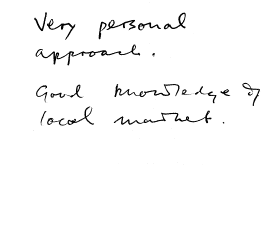 Very personal
approach.
Good knowledge of
local market.